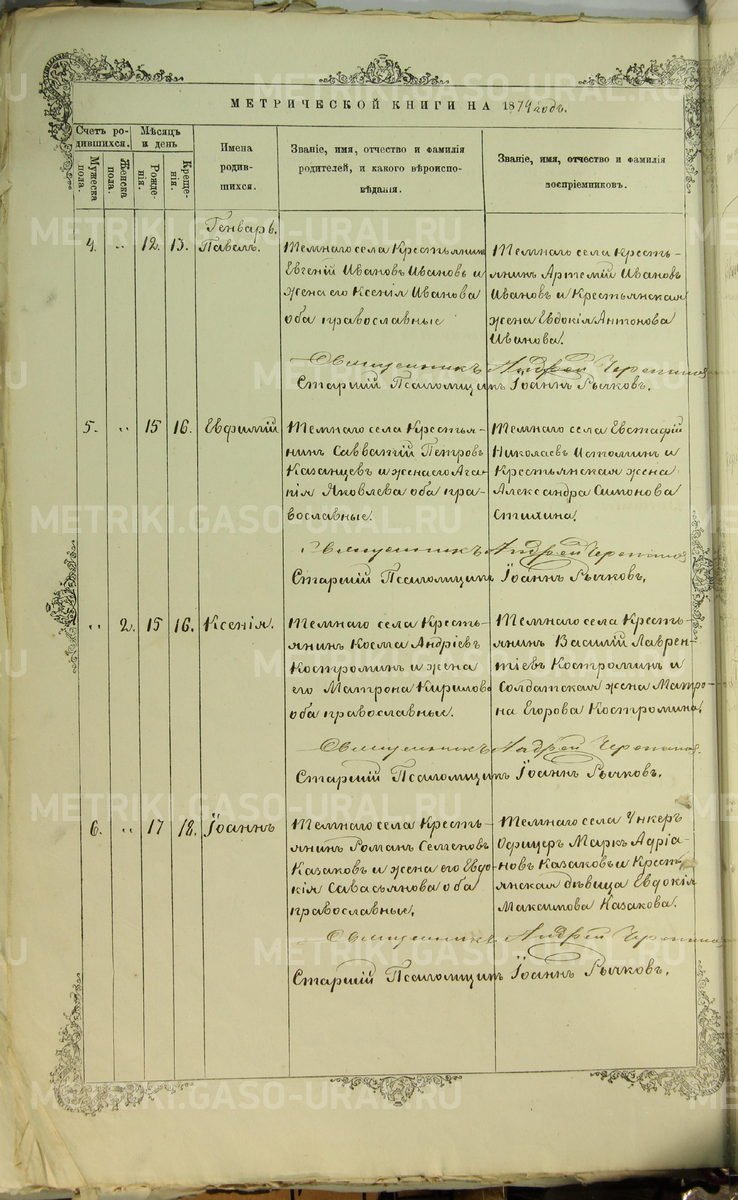 МЕТРИЧЕСКОЙ КНИГИ НА 1874 годъ.
Счетъ ро-
дившихся.
Мужеска
пола.
Женска
пола.
Мѣсяцъ
и день
Рожде-
нія.
Креще-
нія.
Имена
родив-
шихся.
Званіе, имя, отчество и фамилія
родителей, и какого вѣроиспо-
вѣданія.
Званіе, имя, отчество и фамилія
воспріемниковъ.
Генварь.
4. „ 12. 13. Павелъ.
Темнаго села Крестьянинъ
Евгеній Ивановъ Ивановъ и
жена его Ксенія Иванова
оба православные
Темнаго села Кресть-
янинъ Артемій Ивановъ
Ивановъ и Крестьянская
жена Евдокія Антонова
Иванова.
Священникъ Андрей
Старшій Псаломщикъ Іоаннъ Рычковъ.
5. „ 15 16. Евфимій
Темнаго села Крестья-
нинъ Савватій Петровъ
Казанцевъ и жена его Ага-
пія Яковлева оба пра-
вославные.
Темнаго села Евстафій
Николаевъ Истоминъ и
Крестьянская жена
Александра Симонова
Стихина.
Священникъ Андрей
Старшій Псаломщикъ Іоаннъ Рычковъ.
„ 2. 15 16. Ксенія.
Темнаго села Кресть-
янинъ Косма Андріевъ
Костроминъ и жена
его Матрона Кирилова
оба православные.
Темнаго села Кресть-
янинъ Василій Лаврен-
тіевъ Костроминъ и
Солдатская жена Матро-
на Егорова Костромина.
Священникъ Андрей
Старшій Псаломщикъ Іоаннъ Рычковъ.
6. „ 17 18. Іоаннъ
Темнаго села Кресть-
янинъ Романъ Семеновъ
Казаковъ и жена его Евдо-
кія Савасьянова оба
православные.
Темнаго села Ункеръ
Офицеръ Маркъ Адріа-
новъ Казаковъ и Крест-
янская дѣвица Евдокія
Максимова Казакова.
Священникъ Андрей
Старшій Псаломщикъ Іоаннъ Рычковъ.
METRIKI.GASO-URAL.RU